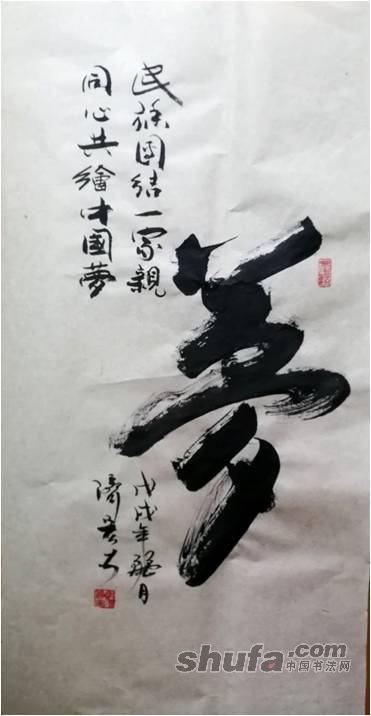 夢
民族團結一家親
同心共繪中國夢
戊戌年臘月
shufa.com
中国书法网